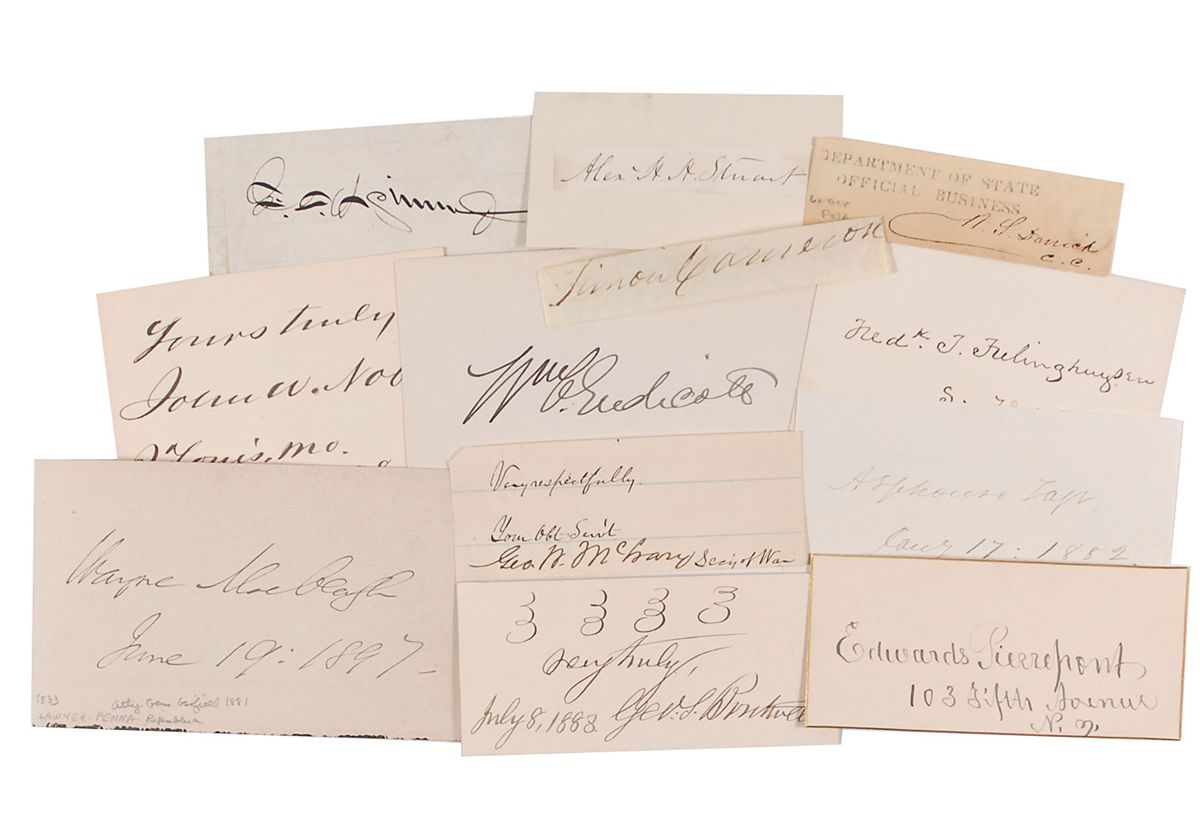 Alex H H Stuart
DEPARTMENT OF STATE
OFFICIAL BUSINESS
C.C.
Simon Cameron
Yours truly
John W. Nob
St Louis, Mo.
Wm C. Endicott
Fredk. T. Frelinghuysen
Very respectfully.
Your Obt Servt
Geo. W. McCrary Secy of War
Alphonso Taft,
Jany 17: 1882
Wayne MacVeagh
June 19: 1897
1833
Atty Gen Garfield 1881
LAWYER - PENNA - Republican
3 3 3 3
Very truly,
July 8, 1883. Geo. S. Boutwell
Edwards Pierrepont,
103 Fifth Avenue
N. Y.